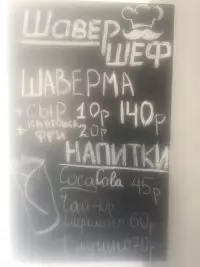 Шавер
ШЕФ
ШАВЕРМА
+ СЫР 10р 140р
+ КАРТОШКА
ФРИ 20р
НАПИТКИ
CocaCola 45р
60р
70р